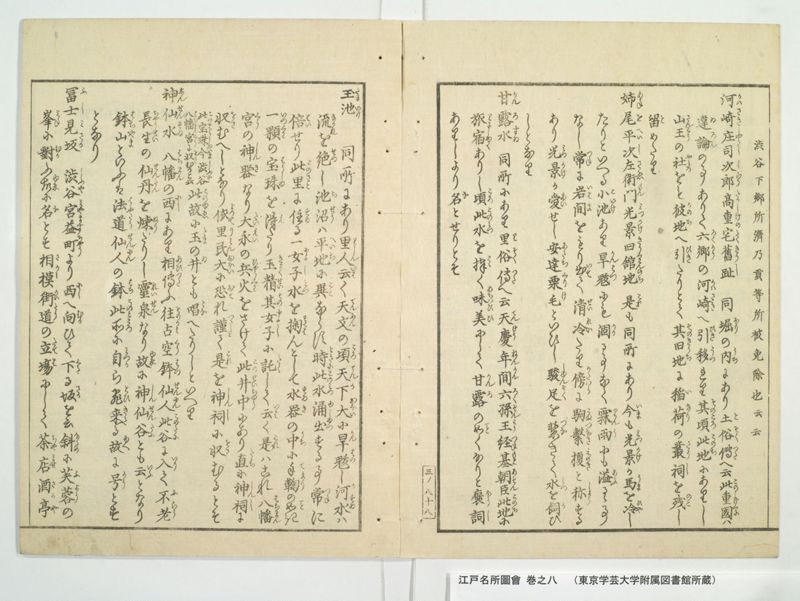 渋谷下郷所濟乃貢等所被免除也云云
河崎庄司次郎高重宅舊趾 同堀の内にあり土俗傳へ云此重国ハ
違論のことありて六郷の河崎へ引移れり其頃此地にありし
山王の社をも彼地へ引たりとて其旧地に稲荷の叢祠を残し
留めたり
姉尾平次左衛門光景旧館地 是も同所にあり今も光景が馬を冷し
たりといへる小池あり旱魃にも涸るゝことなく霖雨にも溢るゝこと
なし常に岩間をもりいでゝ清冷たり傍に駒繋榎と称する
あり光景が愛せし安達栗毛といひし駿足を繋きて水を飼ひ
しとなり
甘露水 同所にあり里俗傳へ云天慶年間六孫王経基朝臣此地に
旅宿ありし頃此水を掬て味美にして甘露のごとくなりと褒詞
ありしより名とせりとぞ
玉池 同所にあり里人云く天文の頃天下大に旱魃し河水ハ
流を絶し池沼ハ平地に異ならず時此水涌出すること常に
倍せり此里に住る一女子水を掬んとして水器の中に鞠のごとき
一顆の宝珠を得たり玉精其女子に託して云く是ハこれ八幡
宮の神器なり大永の兵火をさけて此井中にあり直に神祠に
収むへしとなり依里民大に恐れ謹て是を神祠に収むるとぞ
此宝珠今渋谷八幡宮にあり此故に玉の井とも唱へたりしといへり
神仙水 八幡の西にあり相傳ふ往古空鉢仙人此谷に入て不老
長生の仙丹を煉たりし霊泉なり故に神仙谷とも云となり
鉢山といへるは法道仙人の鉢此所に自ら飛来る故に号とす
となり
冨士見坂 渋谷宮益町より西へ向ひて下る坂を云斜に芙蓉の
峯に對ふ故に名とす相模街道の立場にして茶店酒亭
五ノ八十八
江戸名所圖會 巻之八 （東京学芸大学附属図書館所蔵）